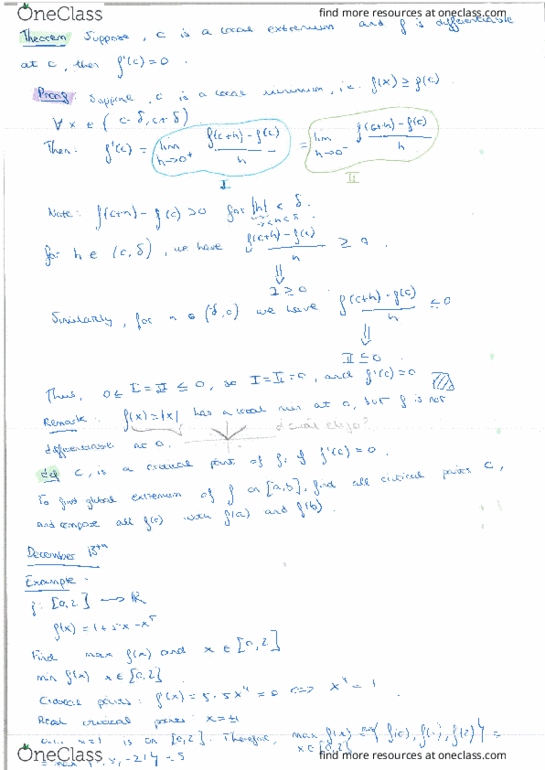 OneClass
find more resources at oneclass.com
Theorem Suppose, c is a local extremum and f is differentiable
at c, then f'(c) = 0.
Proof: Suppose, c is a local minimum, i.e. f(x) ≥ f(c)
∀ x ∈ (c-δ, c+δ)
Then: f'(c) = lim h→0⁺ f(c+h) - f(c) / h = lim h→0⁻ f(c+h) - f(c) / h
I II
Note: f(c+h) - f(c) ≥0 for |h| < δ.
for h ∈ (c, δ), we have f(c+h) - f(c) / h ≥ 0
⇓
I ≥ 0
Similarly, for we have f(c+h) - f(c) / h ≤ 0
⇓
II ≤ 0
Thus, 0 ≤ I = II ≤ 0, so I = II = 0, and f'(c) = 0
Remark: f(x) = |x| has a local min at 0, but f is not
differentiable at 0.
def c, is a critical point of f if f'(c) = 0.
To find global extremum of f on [a,b], find all critical points c,
and compare all f(c) with f(a) and f(b).
December 13th
Example:
f: [0,2] → ℝ
f(x) = 1 + 5x - x⁵
Find max f(x) and x ∈ [0,2]
min f(x) x ∈ [0,2]
Critical points: f'(x) = 5 - 5x⁴ = 0 ⇔ x⁴ = 1
Real critical points: x = ±1
x=1 is on [0,2]. Therefore, max f(x) = f(0), f(1), f(2)} =
x∈[0,2]
OneClass
find more resources at oneclass.com